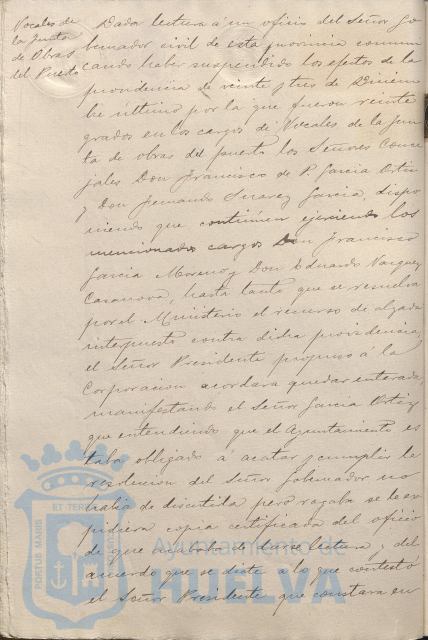 Vocales de
la Junta
de Obras
del Puerto
Dada lectura á un oficio del Señor Go
bernador civil de esta provincia comuni
cando haber suspendido los efectos de la
providencia de veinte y tres de Diciem
bre último por la que fueron reinte
grados en los cargos de Vocales de la Jun
ta de obras del puerto los Señores Conce
jales Don Francisco de P. Garcia Ortiz
y Don Fernando Suarez Garcia, dispo
niendo que continúen ejerciendo los
mencionados cargos Don Francisco
Garcia Moreno y Don Eduardo Vazquez
Casanova, hasta tanto que se resuelva
por el Ministerio el recurso de alzada
interpuesto contra dicha providencia,
el Señor Presidente propuso á la
Corporacion acordara quedar enterada,
manifestando el Señor Garcia Ortiz
que entendiendo que el Ayuntamiento es
taba obligado á acatar y cumplir la
resolucion del Señor Gobernador no
habia de discutirla pero rogaba se le ex
pidiera copia certificada del oficio
de que acababa de darse lectura y del
acuerdo que se dicte á lo que contestó
el Señor Presidente que constara en
PORTUS MARIS ET TERRAE
Ayuntamiento de
HUELVA